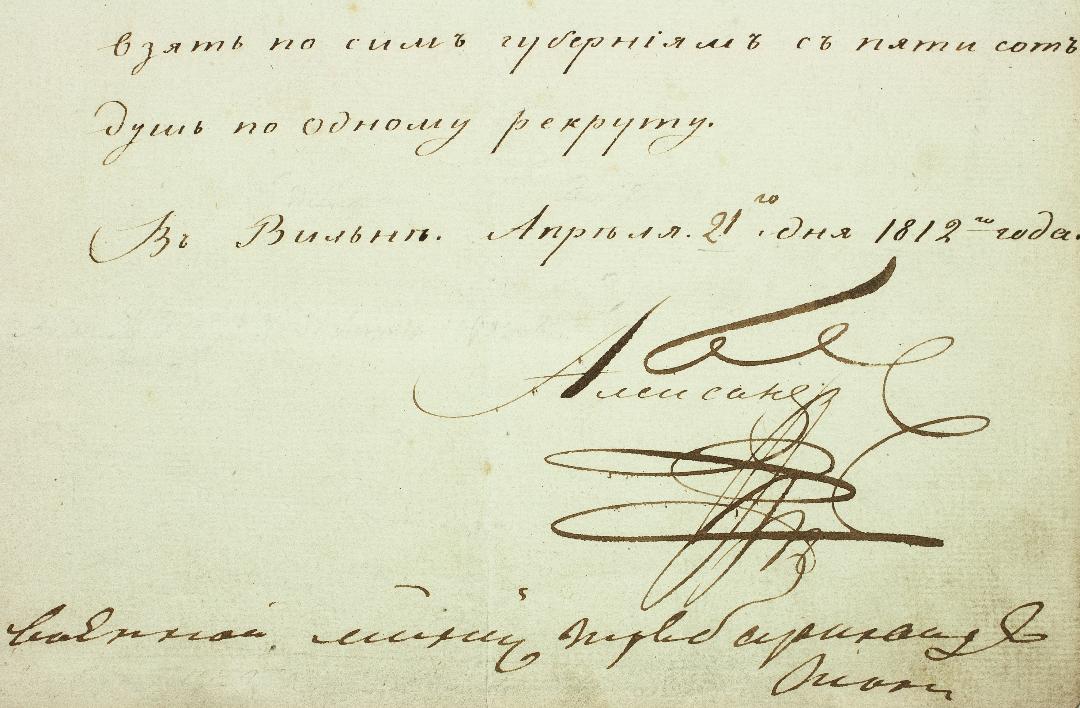 взять по симъ губерніямъ съ пяти сотъ
душь по одному рекруту.
Въ Вильнѣ. Апрѣля. 21го дня 1812го года.
Александръ
военной министръ Барклай де
Толли